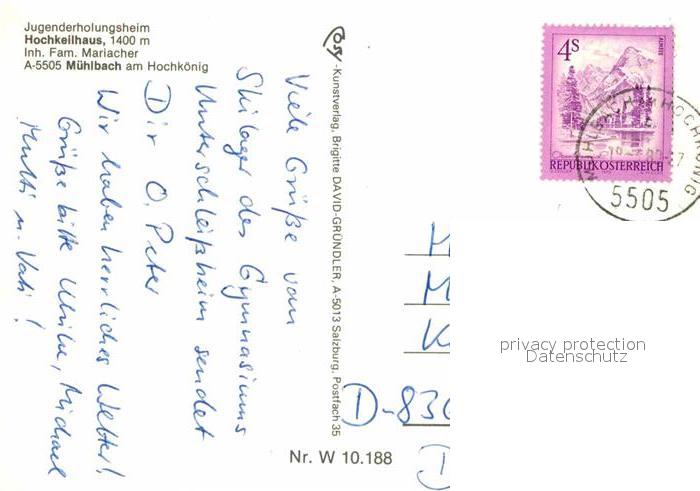 Jugenderholungsheim
Hochkeilhaus, 1400 m
Inh. Fam. Mariacher
A-5505 Mühlbach am Hochkönig
Viele Grüße vom
Skilager des Gymnasiums
Unterschleißheim sendet
Dir O. Peter
Wir haben herrliches Wetter!
Grüße bitte Ulrike, Michael
Mutti u. Vati!
Posy-Kunstverlag, Brigitte DAVID-GRÜNDLER, A-5013 Salzburg, Postfach 35
Nr. W 10.188
4S
ALMSEE
REPUBLIK ÖSTERREICH
MÜHLBACH AM HOCHKÖNIG
5505
M
K
D-836
D
privacy protection
Datenschutz